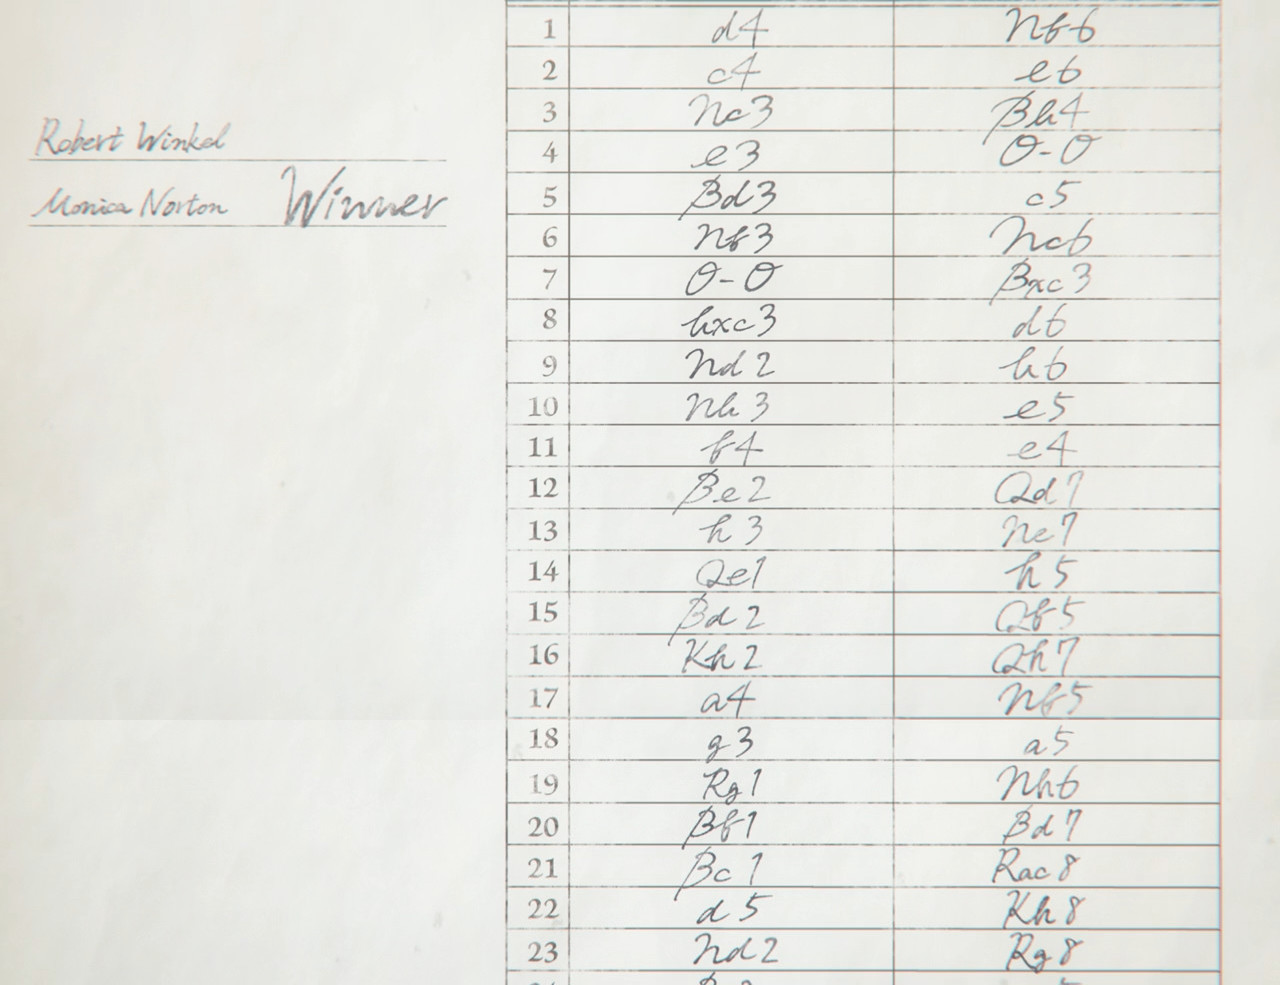 Robert Winkel
Monica Norton Winner
1 d4 Nf6
2 c4 e6
3 Nc3 Bb4
4 e3 O-O
5 Bd3 c5
6 Nf3 Nc6
7 O-O Bxc3
8 bxc3 d6
9 Nd2 b6
10 Nb3 e5
11 f4 e4
12 Be2 Qd7
13 h3 Ne7
14 Qe1 h5
15 Bd2 Qf5
16 Kh2 Qh7
17 a4 Nf5
18 g3 a5
19 Rg1 Nh6
20 Bf1 Bd7
21 Bc1 Rac8
22 d5 Kh8
23 Nd2 Rg8